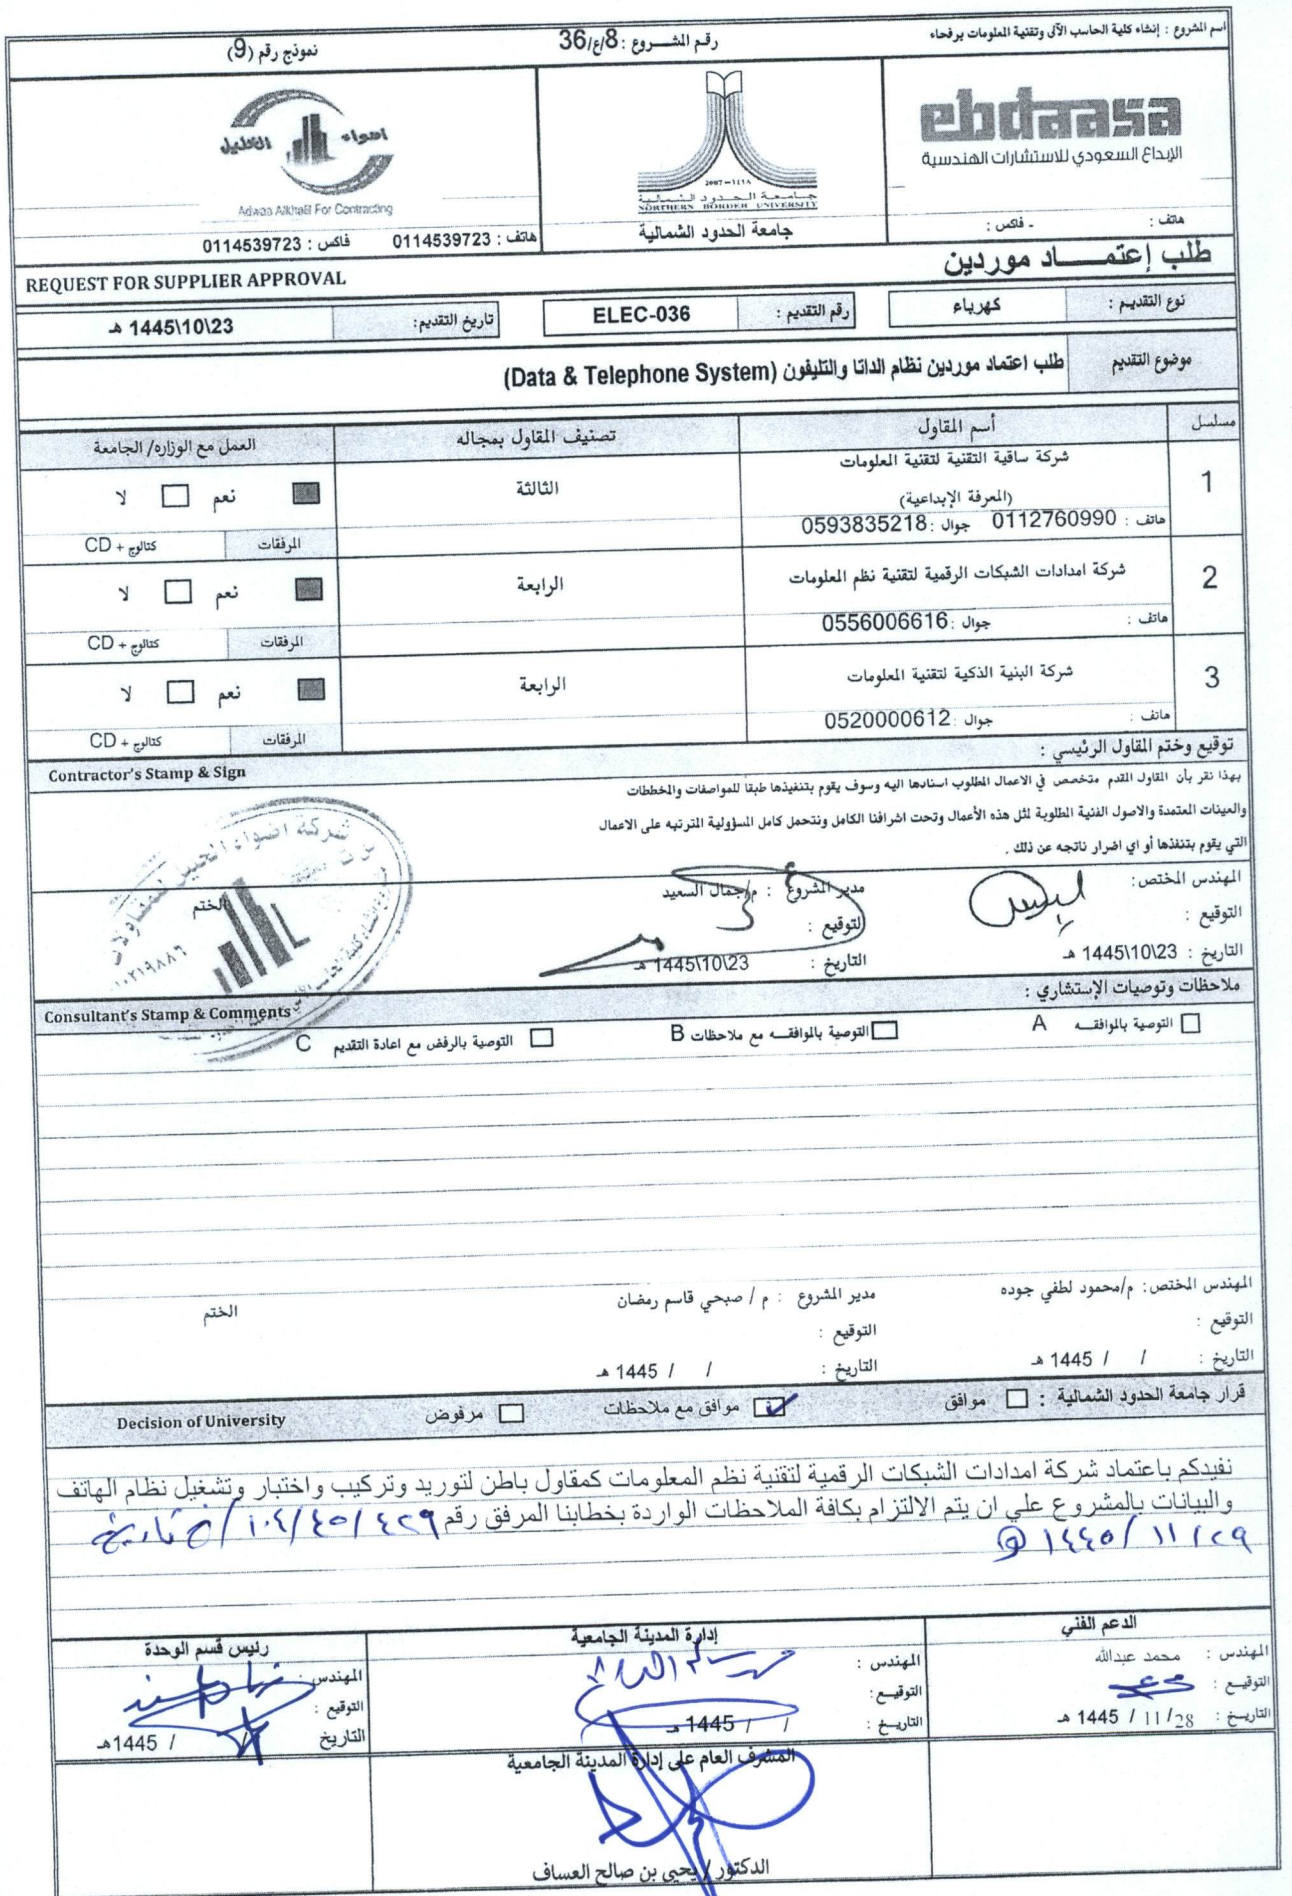 اسم المشروع : إنشاء كلية الحاسب الآلى وتقنية المعلومات برفحاء
رقم المشـــروع :8/ع/36
نموذج رقم (9)
ebdaasa
الإبداع السعودي للاستشارات الهندسية
هاتف : - فاكس :
2007-1428
جامعة الحدود الشمالية
NORTHERN BORDER UNIVERSITY
جامعة الحدود الشمالية
اضواء الخليل
Adwaa Alkhalil For Contracting
هاتف : 0114539723 فاكس : 0114539723
طلب إعتمـــــاد موردين
REQUEST FOR SUPPLIER APPROVAL
نوع التقديم : كهرباء
رقم التقديم : ELEC-036
تاريخ التقديم: 23\10\1445 هـ
موضوع التقديم طلب اعتماد موردين نظام الداتا والتليفون (Data & Telephone System)
مسلسل أسم المقاول تصنيف المقاول بمجاله العمل مع الوزاره/ الجامعة
1 شركة ساقية التقنية لتقنية المعلومات
(المعرفة الإبداعية)
هاتف : 0112760990 جوال :0593835218
الثالثة
نعم لا
المرفقات كتالوج + CD
2 شركة امدادات الشبكات الرقمية لتقنية نظم المعلومات
هاتف : جوال :0556006616
الرابعة
نعم لا
المرفقات كتالوج + CD
3 شركة البنية الذكية لتقنية المعلومات
هاتف : جوال :0520000612
الرابعة
نعم لا
المرفقات كتالوج + CD
توقيع وختم المقاول الرئيسي :
Contractor's Stamp & Sign
بهذا نقر بأن المقاول المقدم متخصص في الاعمال المطلوب اسنادها اليه وسوف يقوم بتنفيذها طبقا للمواصفات والمخططات
والعينات المعتمدة والاصول الفنية المطلوبة لمثل هذه الأعمال وتحت اشرافنا الكامل ونتحمل كامل المسؤولية المترتبه على الاعمال
التي يقوم بتنفذها أو اي اضرار ناتجه عن ذلك .
المهندس المختص:
التوقيع :
التاريخ : 23\10\1445 هـ
مدير المشروع : م/جمال السعيد
التوقيع :
التاريخ : 23\10\1445 هـ
الختم
ملاحظات وتوصيات الإستشاري :
Consultant's Stamp & Comments
التوصية بالموافقــه A
التوصية بالموافقــه مع ملاحظات B
التوصية بالرفض مع اعادة التقديم C
المهندس المختص: م/محمود لطفي جوده
التوقيع :
التاريخ : / / 1445 هـ
مدير المشروع : م / صبحي قاسم رمضان
التوقيع :
التاريخ : / / 1445 هـ
الختم
قرار جامعة الحدود الشمالية : موافق موافق مع ملاحظات مرفوض
Decision of University
نفيدكم باعتماد شركة امدادات الشبكات الرقمية لتقنية نظم المعلومات كمقاول باطن لتوريد وتركيب واختبار وتشغيل نظام الهاتف
والبيانات بالمشروع علي ان يتم الالتزام بكافة الملاحظات الواردة بخطابنا المرفق رقم ٤٢٩/٤٥/١٠٤/ج تاريخ
٢٩/١١/١٤٤٥ هـ
الدعم الفني
المهندس : محمد عبدالله
التوقيـع :
التاريـخ : 28/ 11 / 1445 هـ
إدارة المدينة الجامعية
المهندس :
التوقيـع:
التاريـخ : / / 1445 هـ
رئيس قسم الوحدة
المهندس :
التوقيع :
التاريخ / 1445هـ
المشرف العام على إدارة المدينة الجامعية
الدكتور / يحيى بن صالح العساف